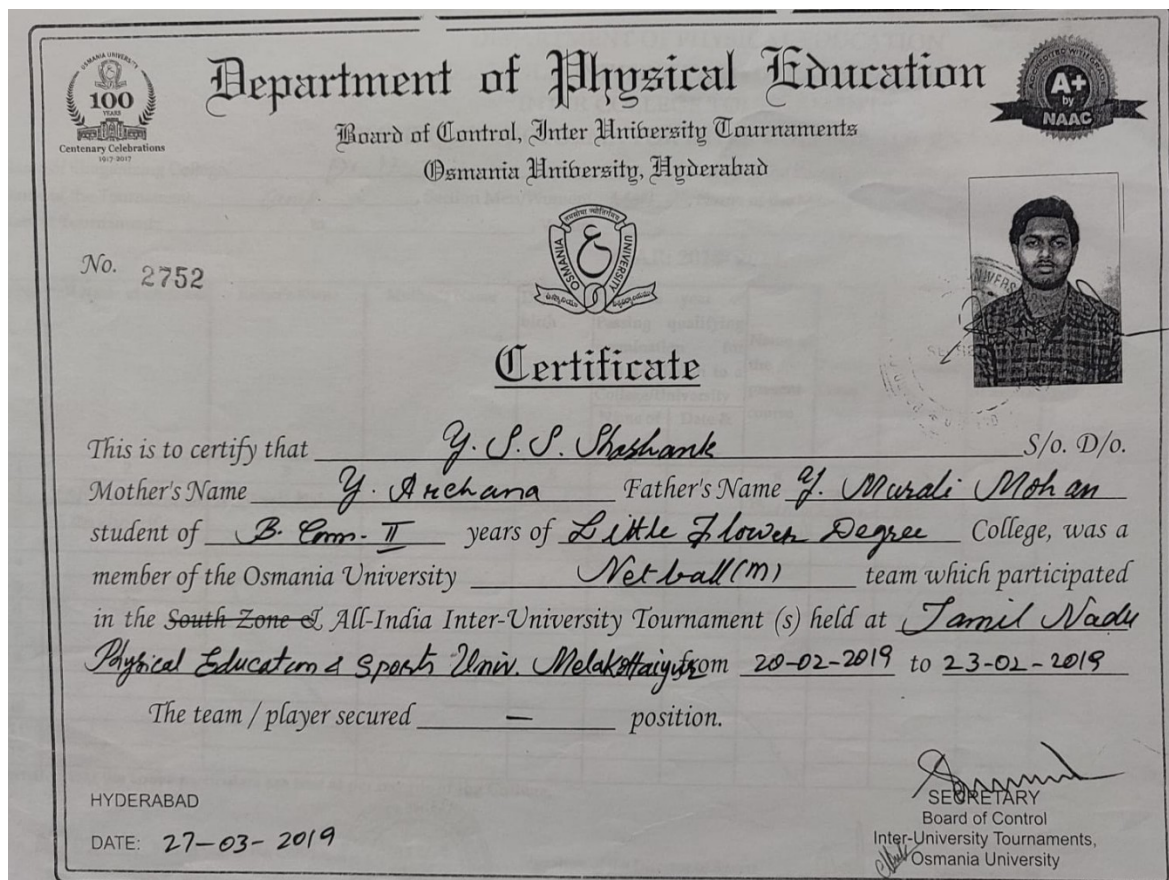 OSMANIA UNIVERSITY
100
YEARS
Centenary Celebrations
1917-2017
Department of Physical Education
Board of Control, Inter University Tournaments
Osmania University, Hyderabad
ACCREDITED WITH GRADE
A+
by
NAAC
OSMANIA UNIVERSITY
No. 2752
Certificate
This is to certify that Y. S. S. Shashank S/o. D/o.
Mother's Name Y. Archana Father's Name Y. Murali Mohan
student of B. Com. II years of Little Flower Degree College, was a
member of the Osmania University Netball (m) team which participated
in the South Zone & All-India Inter-University Tournament (s) held at Tamil Nadu
Physical Education & Sports Univ. Melakottaiyur from 20-02-2019 to 23-02-2019
The team / player secured — position.
HYDERABAD
DATE: 27-03-2019
SECRETARY
Board of Control
Inter-University Tournaments,
Osmania University